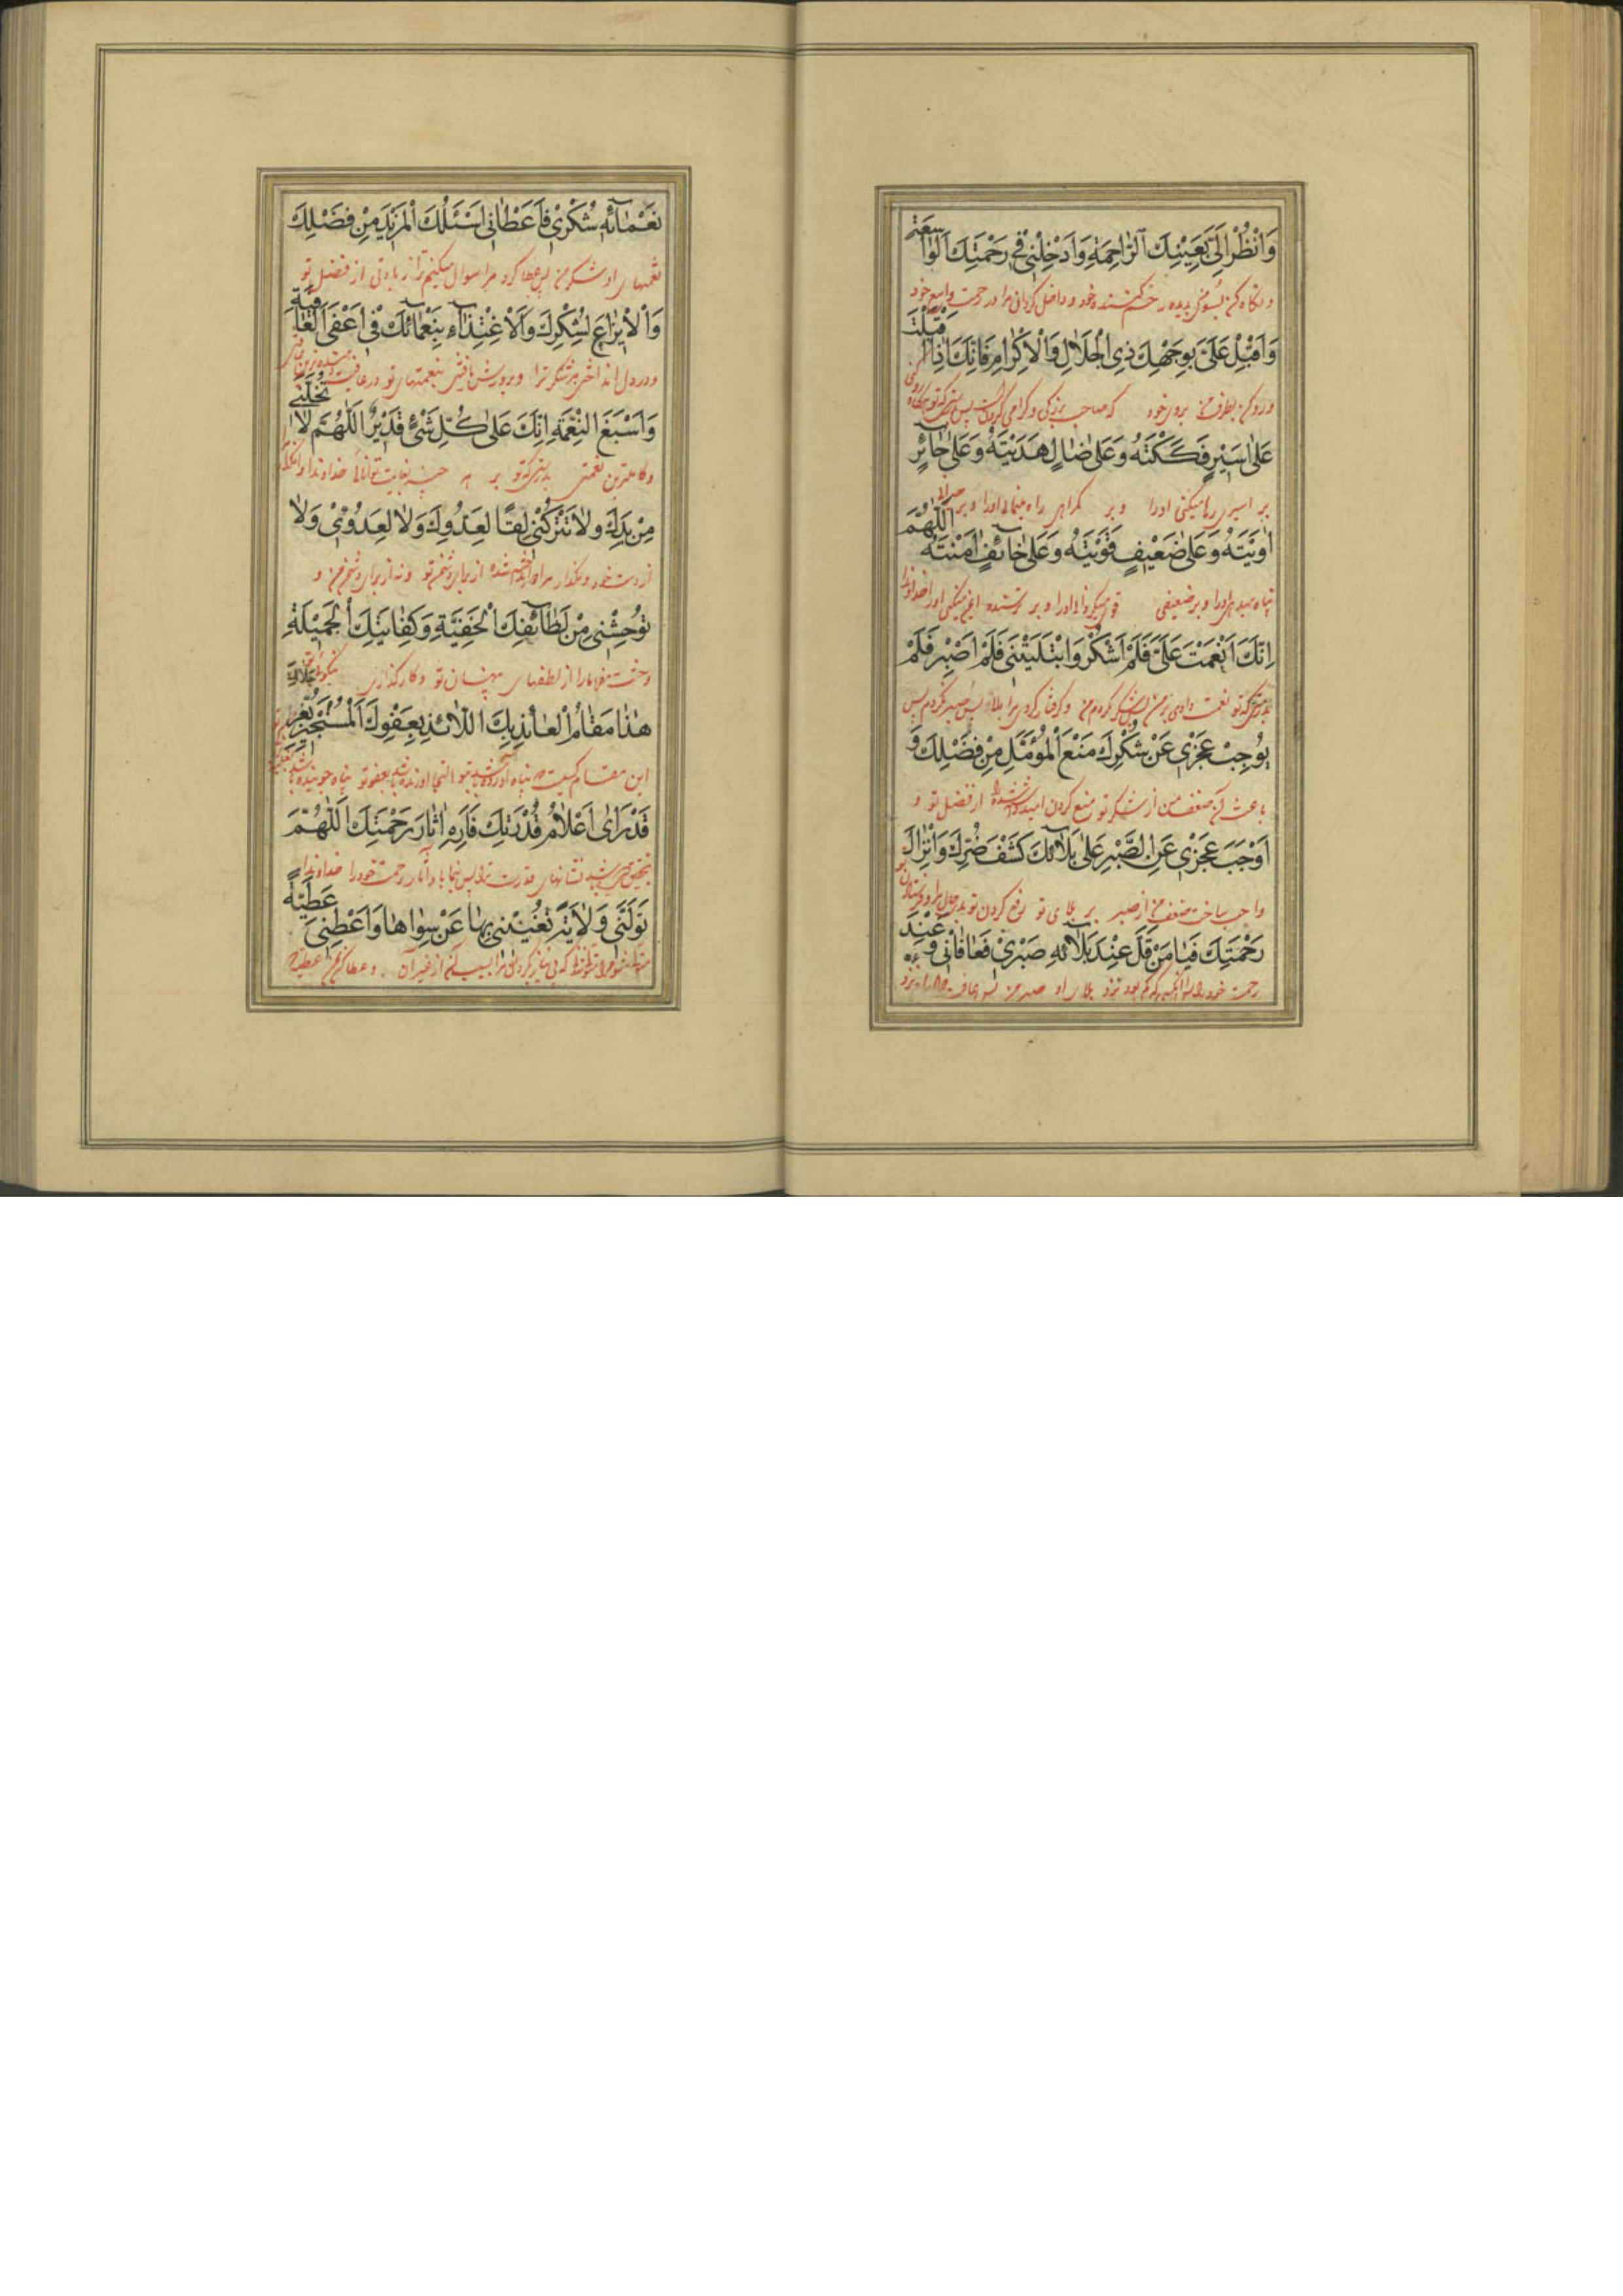 وَانْظُرْ اِلَیَّ بِعَیْنِكَ الرّٰاحِمَةِ وَاَدْخِلْنِی فِی رَحْمَتِكَ الْوٰاسِعَةِ
و نگاه کن بسوی من بدیده رحم کننده خود و داخل گردانی مرا در رحمت واسع خود
وَاَقْبِلْ عَلَیَّ بِوَجْهِكَ ذِی الْجَلاٰلِ وَالْاِکْرٰامِ فَاِنَّكَ اِذٰا اَقْبَلْتَ
و رو کن بطرف من بروی خود که صاحب بزرگی و گرامی پس بدرستیکه تو هرگاه
عَلٰی اَسِیْرٍ فَکَکْتَهُ وَعَلٰی ضٰالٍّ هَدَیْتَهُ وَعَلٰی حٰائِرٍ
بر اسیری رها میکنی او را و بر گمراهی راه مینمائی او را و بر حیرانی
اٰوَیْتَهُ وَعَلٰی ضَعِیْفٍ قَوَّیْتَهُ وَعَلٰی خٰائِفٍ اٰمَنْتَهُ اَللّٰهُمَّ
پناه میدهی او را و بر ضعیفی قوی میگردانی او را و بر ترسنده ایمن میکنی او را خداوندا
اِنَّكَ اَنْعَمْتَ عَلَیَّ فَلَمْ اَشْکُرْ وَابْتَلَیْتَنِی فَلَمْ اَصْبِرْ فَلَمْ
بدرستیکه تو نعمت دادی بر من پس شکر نکردم من و گرفتار کردی مرا ببلا پس صبر نکردم پس
یُوْجِبْ عَجْزِی عَنْ شُکْرِكَ مَنْعَ الْمُؤَمَّلِ مِنْ فَضْلِكَ وَ
باعث ضعف من از شکر تو منع کردن امید داشته شده از فضل تو و
اَوْجَبَ عَجْزِی عَنِ الصَّبْرِ عَلٰی بَلاٰئِكَ کَشْفَ ضُرِّكَ وَاِنْزٰالَ
واجب ساخت ضعف من از صبر بر بلای تو رفع کردن تو
رَحْمَتِكَ فَیٰا مَنْ قَلَّ عِنْدَ بَلاٰئِهِ صَبْرِی فَعٰافٰانِی وَعِنْدَ
رحمت خود را پس ای آنکسی که کم بود نزد بلای او صبر من پس عافیت داد مرا و نزد
نَعْمٰائِهِ شُکْرِی فَاَعْطٰانِی اَسْئَلُكَ الْمَزِیْدَ مِنْ فَضْلِكَ
نعمتهای او شکر من پس عطا کرد مرا سوال میکنم ترا زیادتی از فضل تو
وَالْاِیْزٰاعَ لِشُکْرِكَ وَالْاِغْتِذٰاءَ بِنَعْمٰائِكَ فِی اَعْفَی الْعٰافِیَةِ
و در دل انداختن شکر ترا و پرورش یافتن بنعمتهای تو در عافیت
وَاَسْبَغِ النِّعْمَةِ اِنَّكَ عَلٰی کُلِّ شَیْءٍ قَدِیْرٌ اَللّٰهُمَّ لاٰ تُخَلِّنِی
و کاملترین نعمتی بدرستیکه تو بر همه چیز بغایت توانائی خداوندا وامگذار
مِنْ یَدِكَ وَلاٰ تَتْرُکْنِی لَقًا لِعَدُوِّكَ وَلاٰ لِعَدُوِّی وَلاٰ
از دست خود و مگذار مرا انداخته شده از برای دشمن تو و نه از برای دشمن من و
تُوْحِشْنِی مِنْ لَطٰائِفِكَ الْخَفِیَّةِ وَکِفٰایَتِكَ الْجَمِیْلَةِ
وحشت مفرما مرا از لطفهای پنهان تو و کارگذاری نیکوی
هٰذٰا مَقٰامُ الْعٰائِذِ بِكَ اللّٰائِذِ بِعَفْوِكَ الْمُسْتَجِیْرِ بِعِزِّ جَلاٰلِكَ
این مقام کسیست که پناه آورده باشد بتو التجا آورنده باشد بعفو تو پناه جوینده باشد
قَدْ رَاٰی اَعْلاٰمَ قُدْرَتِكَ فَاَرِهِ اٰثٰارَ رَحْمَتِكَ اَللّٰهُمَّ
بتحقیق نشانهای قدرت ترا پس بنما باو آثار رحمت خود را خداوندا
تَوَلَّنِی وَلاٰیَةً تُغْنِیْنِی بِهٰا عَنْ سِوٰاهٰا وَاَعْطِنِی عَطِیَّةً
که بی نیاز گردانی مرا بسبب آن از غیر آن و عطا کن مرا عطیه